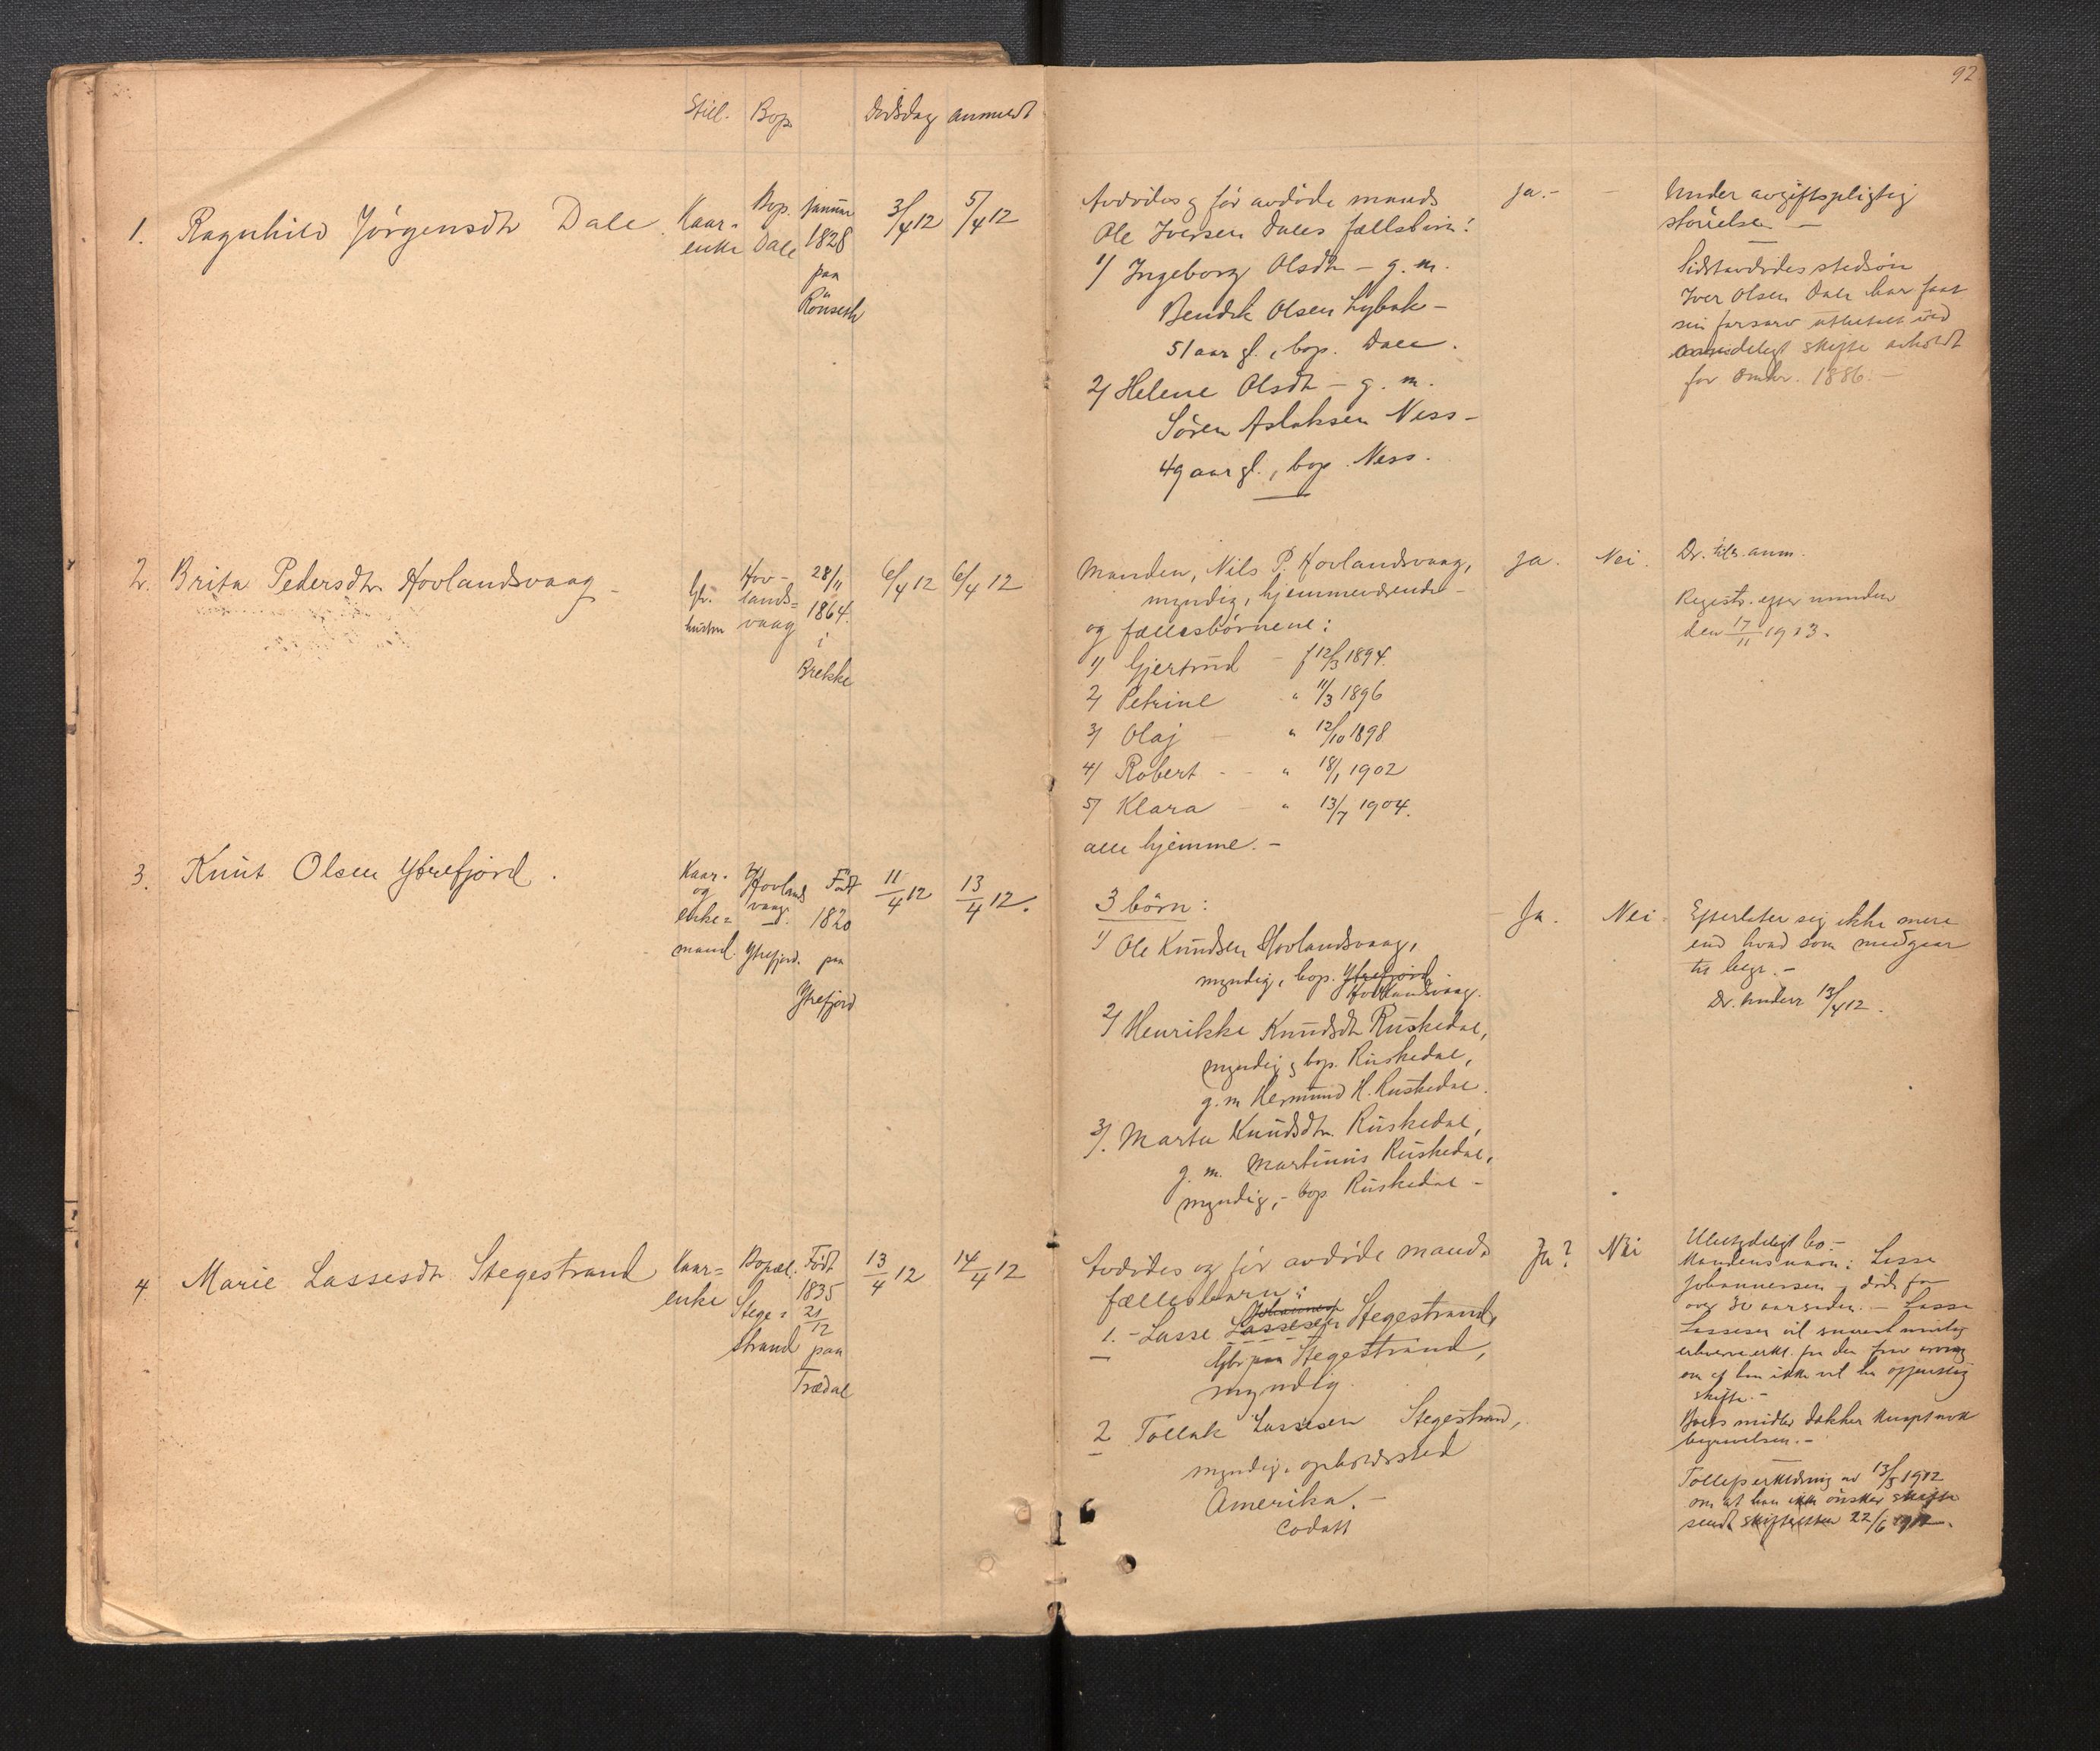 92
Still. Bop. Dødsdag anmeldt
1. Ragnhild Jörgensdtr Dale.
Kaar-
enke
Bop.
Dale
januar
1828
paa
Rönseth
3/4 12 5/4 12
Avdödes og för avdöde mands
Ole Iversen Dales fællsbörn:
1/ Ingeborg Olsdtr – g. m.
Bendik Olsen Lybæk –
51 aar gl., bop. Dale.
2/ Helene Olsdtr – g. m.
Sören Aslaksen Ness –
49 aar gl., bop. Ness.
Ja. – –
Under avgiftspligtig
störrelse –
Sidstavdödes stedsön
Iver Olsen Dale har faat
sin farsarv utbetalt ved
skifte avholdt
for 1886. –
2. Brita Pedersdtr Hovlandsvaag –
Gbr.
hustru
Hov-
lands-
vaag
28/11
1864.
i
Brekke
6/4 12 6/4 12
Manden, Nils P. Hovlandsvaag,
myndig, hjemmeværende –
og fællesbörnene:
1/ Gjertrud – f 12/3 1894.
2/ Petrine " 11/3 1896
3/ Olaf – " 12/10 1898
4/ Robert - - " 18/1 1902
5/ Klara – " 13/7 1904.
alle hjemme. –
Ja. Nei.
Dr. tils. anm.
Registr. efter manden
den 17/11 1913.
3. Knut Olsen Ytrefjord.
Kaar-
og
enke=
mand.
Hovlands
vaag.
Ytrefjord.
Födt
1820
paa
Ytrefjord
11/4 12 13/4 12.
3 börn:
1/ Ole Knudsen Hovlandsvaag,
myndig, bop. Ytrefjord
Hovlandsvaag.
2/ Henrikke Knudsdtr Ruskedal,
myndig, bop. Ruskedal,
g. m Hermund H. Ruskedal.
3/. Marta Knudsdtr. Ruskedal,
g. m. Martinus Ruskedal,
myndig, – bop. Ruskedal –
Ja. Nei.
Efterlater sig ikke mere
end hvad som medgaar
til begr. –
Dr. underr 13/4 12.
4 Marie Lassesdtr. Stegestrand
Kaar=
enke
Bopæl.
Stege=
strand
Födt
1835
21/12
paa
Trædal
13/4 12 14/4 12
Avdödes og för avdöde mands
fællesbarn:
Johannes
1. – Lasse Lassesen Stegestrand,
Gbr paa Stegestrand,
myndig.
2 Tollak Lassesen Stegestrand,
myndig, opholdssted
Amerika. –
Codatt
Ja? Nei
Ubetydeligt bo –
Mandens navn: Lasse
Johannessen – död for
over 30 aar siden. – Lasse
Lassesen vil snarest mulig
erkl. fra den
om at han ikke vil ha offentlig
skifte. –
Boets midler dækker knapt nok
begravelsen. –
Tollefs erklæring av 13/5 1912
om at han ikke önsker skifte
sendt skifteretten 22/6 1912.